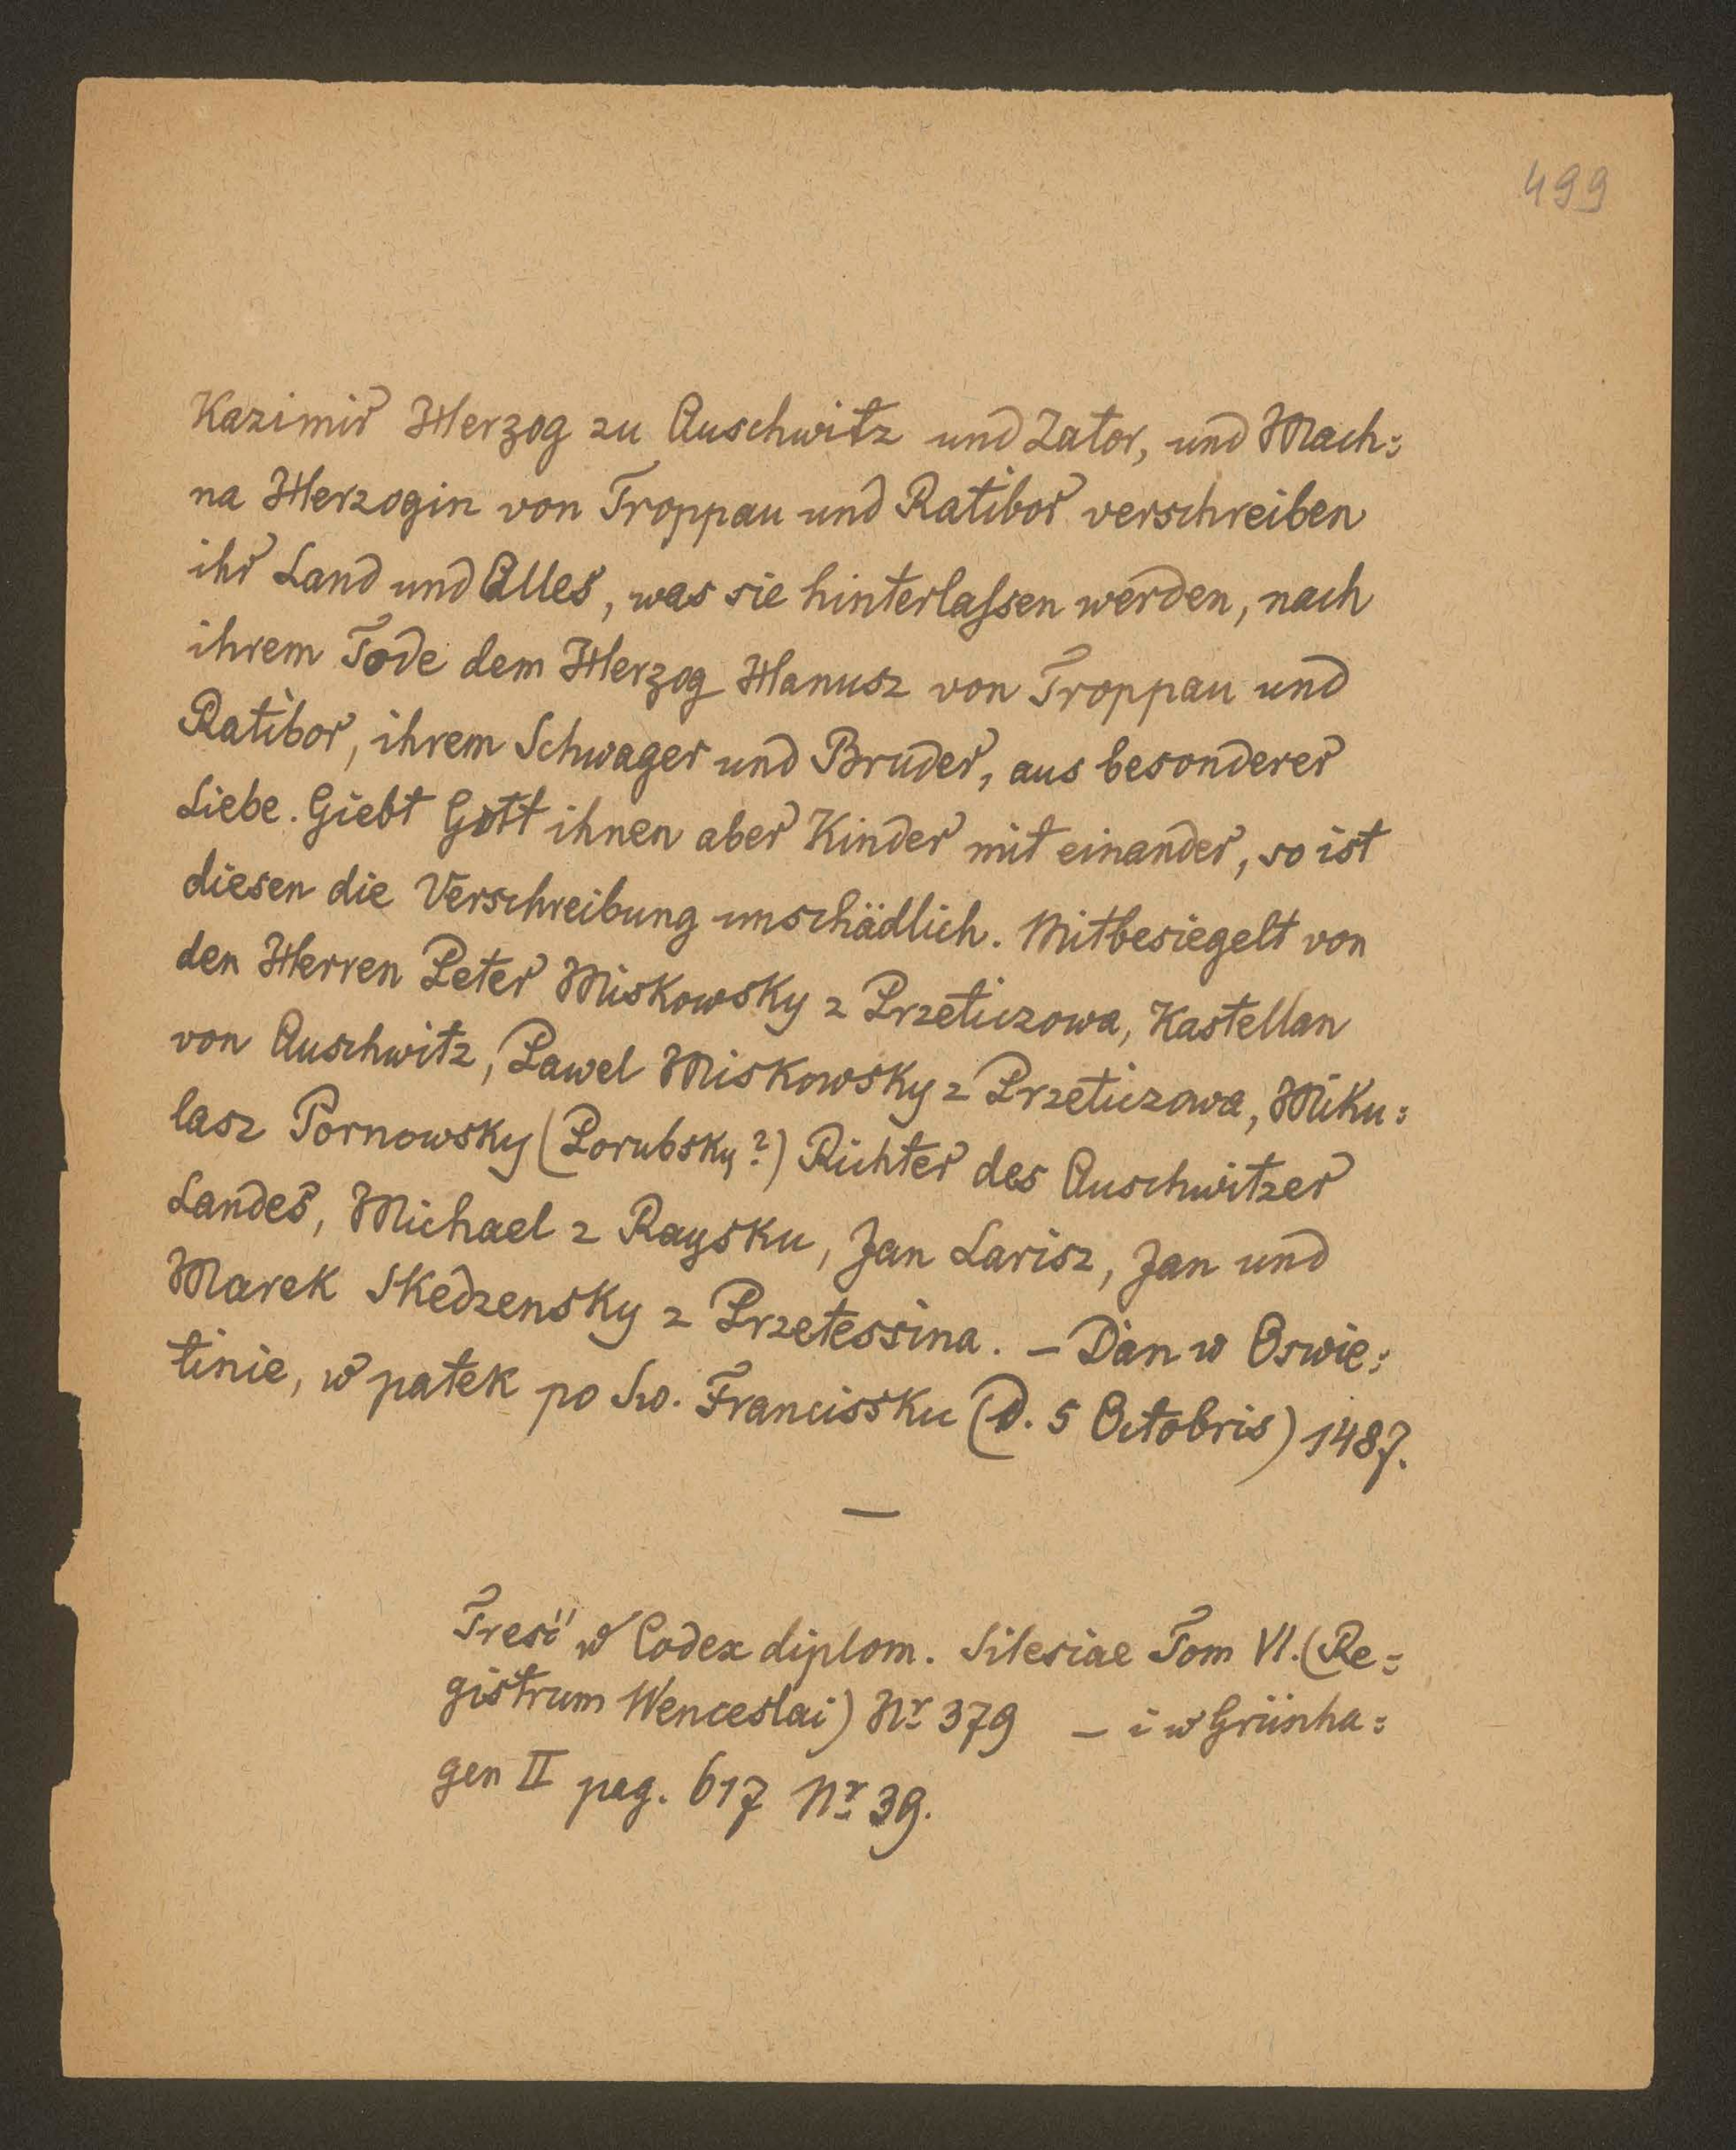 499
Kazimir Herzog zu Auschwitz und Zator, und Mach=
na Herzogin von Troppau und Ratibor verschreiben
ihr Land und Alles, was sie hinterlaſsen werden, nach
ihrem Tode dem Herzog Hanusz von Troppau und
Ratibor, ihrem Schwager und Bruder, aus besonderer
Liebe. Giebt Gott ihnen aber Kinder mit einander, so ist
diesen die Verschreibung unschädlich. Mitbesiegelt von
den Herren Peter Miskowsky z Przeticzowa, Kastellan
von Auschwitz, Pawel Miskowsky z Przeticzowa, Miku=
lasz Pornowsky (Porubsky?) Richter des Auschwitzer
Landes, Michael z Raysku, Jan Larisz, Jan und
Marek Skedzensky z Przetessina. – Dan w Oswie=
tinie, w patek po Sw. Francissku (d. 5 Octobris) 1487.
—
Treść w Codex diplom. Silesiae Tom VI. (Re=
gistrum Wenceslai) Nr 379 – i w Grünha=
gen II pag. 617 Nr 39.